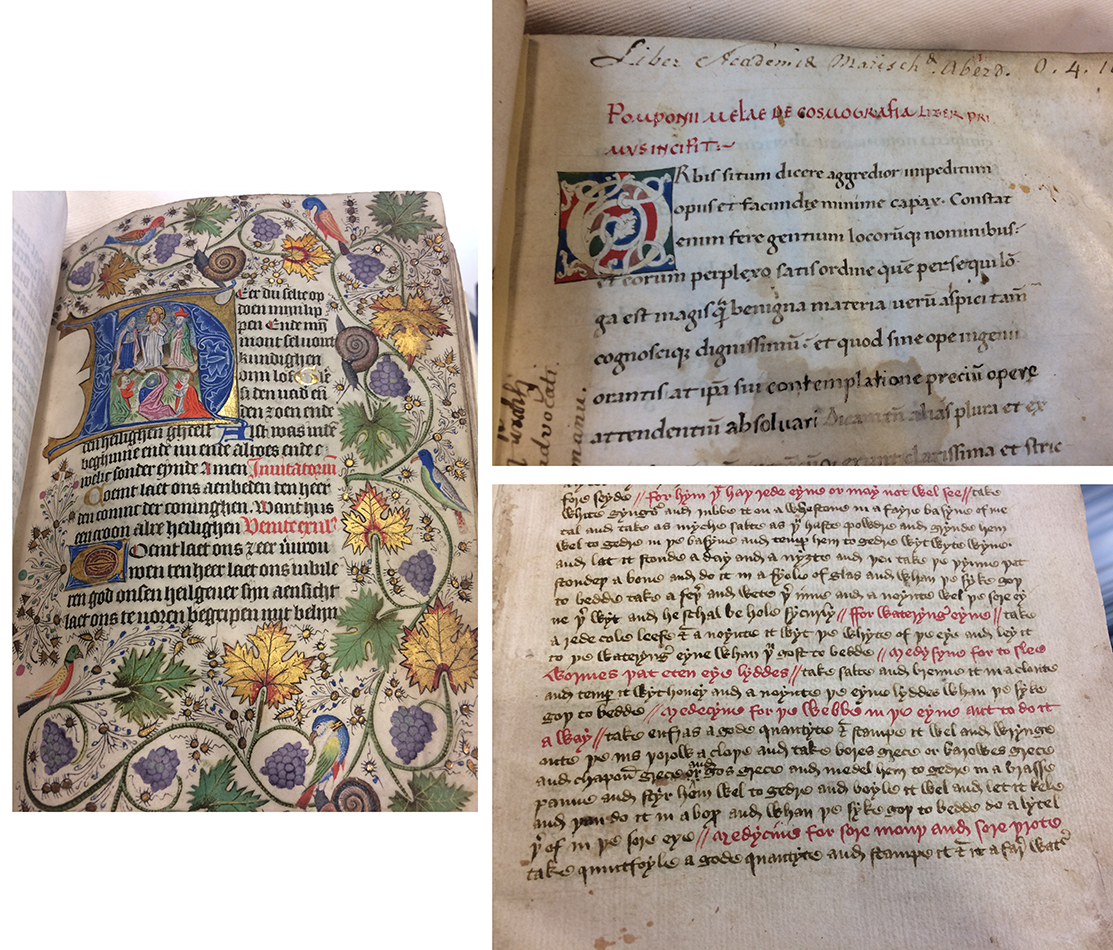 Eer du selt op
doen mijn lip
pen Ende mijn
mont sel uont
kundighen
dijn lof Glorie
si den uad en
den zoen ende
den heilighen gheest Alst was inde
beghinne ende nu ende altoes ende e
welic sonder eynde Amen Inuitatorium
Coemt laet ons aenbeden den heer
den conint der coninghen. Want hi is
een croon alre heilighen Venite
Coemt laet ons zeer urou
wen den heer laet ons iubile
ren god onsen heilgeuer sijn aensicht
laet ons te uoren begripen mit belyin
Liber Academiæ Marisch. Aberd. O. 4.
POMPONII MELAE DE COSMOGRAFIA LIBER PRI
MVS INCIPIT:~
ORbis situm dicere aggredior impeditum
opus et facundię minime capax. Constat
enim fere gentium locorūq; nominibus:
et eorum perplexo satis ordine quē persequi lō
ga est magis q̄ benigna materia uerū aspici tam̄
cognosciq; dignissimū: et quod sine ope ingenii
orantis at ip̄a sui contemplatione preciū opere
attendentiū absoluat Dicam aūt alias plura et ex
clarissima et stric
aduocati
manu.
fore seyde // For hym þt hay rede eyne or may not wel see // take
white gyngere and rubbe it on a whestone in a fayre basyne of me
tal and take as myche salte as þu haste powdre and grynde hem
wel to gedre in þe basyne and temp hem to gedre wyt wyte wyne.
and let it stonde a day and a nyzte and þen take þe þynne þet
stondeþ a boue and do it in a fyole of glas and whan þe syke goþ
to bedde take a feþer and wete yt inne and a noynte wel þe sore ey
ne þt wyt and he schal be hole sycurly // ffor wateryng eyne // take
a rede cole leefe & a noynte it wyt þe whyte of þe eye and ley it
to þe wateryng eyne whan þu gost to bedde // Medysyne for to slee
wormes þat eten eyen lyddes // take salte and brenne it in a cloute
and temp it wyt honey and a noynte þe eyne lyddes whan þe syke
goþ to bedde // Medecyne for þe webbe in þe eyne and to do it
a way // take a gode quantyte & stampe it wel and wrynge
oute þe ius þorow a cloþe and take bores grece or barowes grece
and chapoun grece and gos grece and medel hem to gedre in a brasse
panne and styr hem wel to gedre and boyle it wel and let it kele
and þan do it in a box and whan þe syke goþ to bedde do a lytel
þer of in þe sore eye // Medycine for sore mouþ and sore þrote
take quintfoyle a gode quantyte and stampe it & in a fayr water